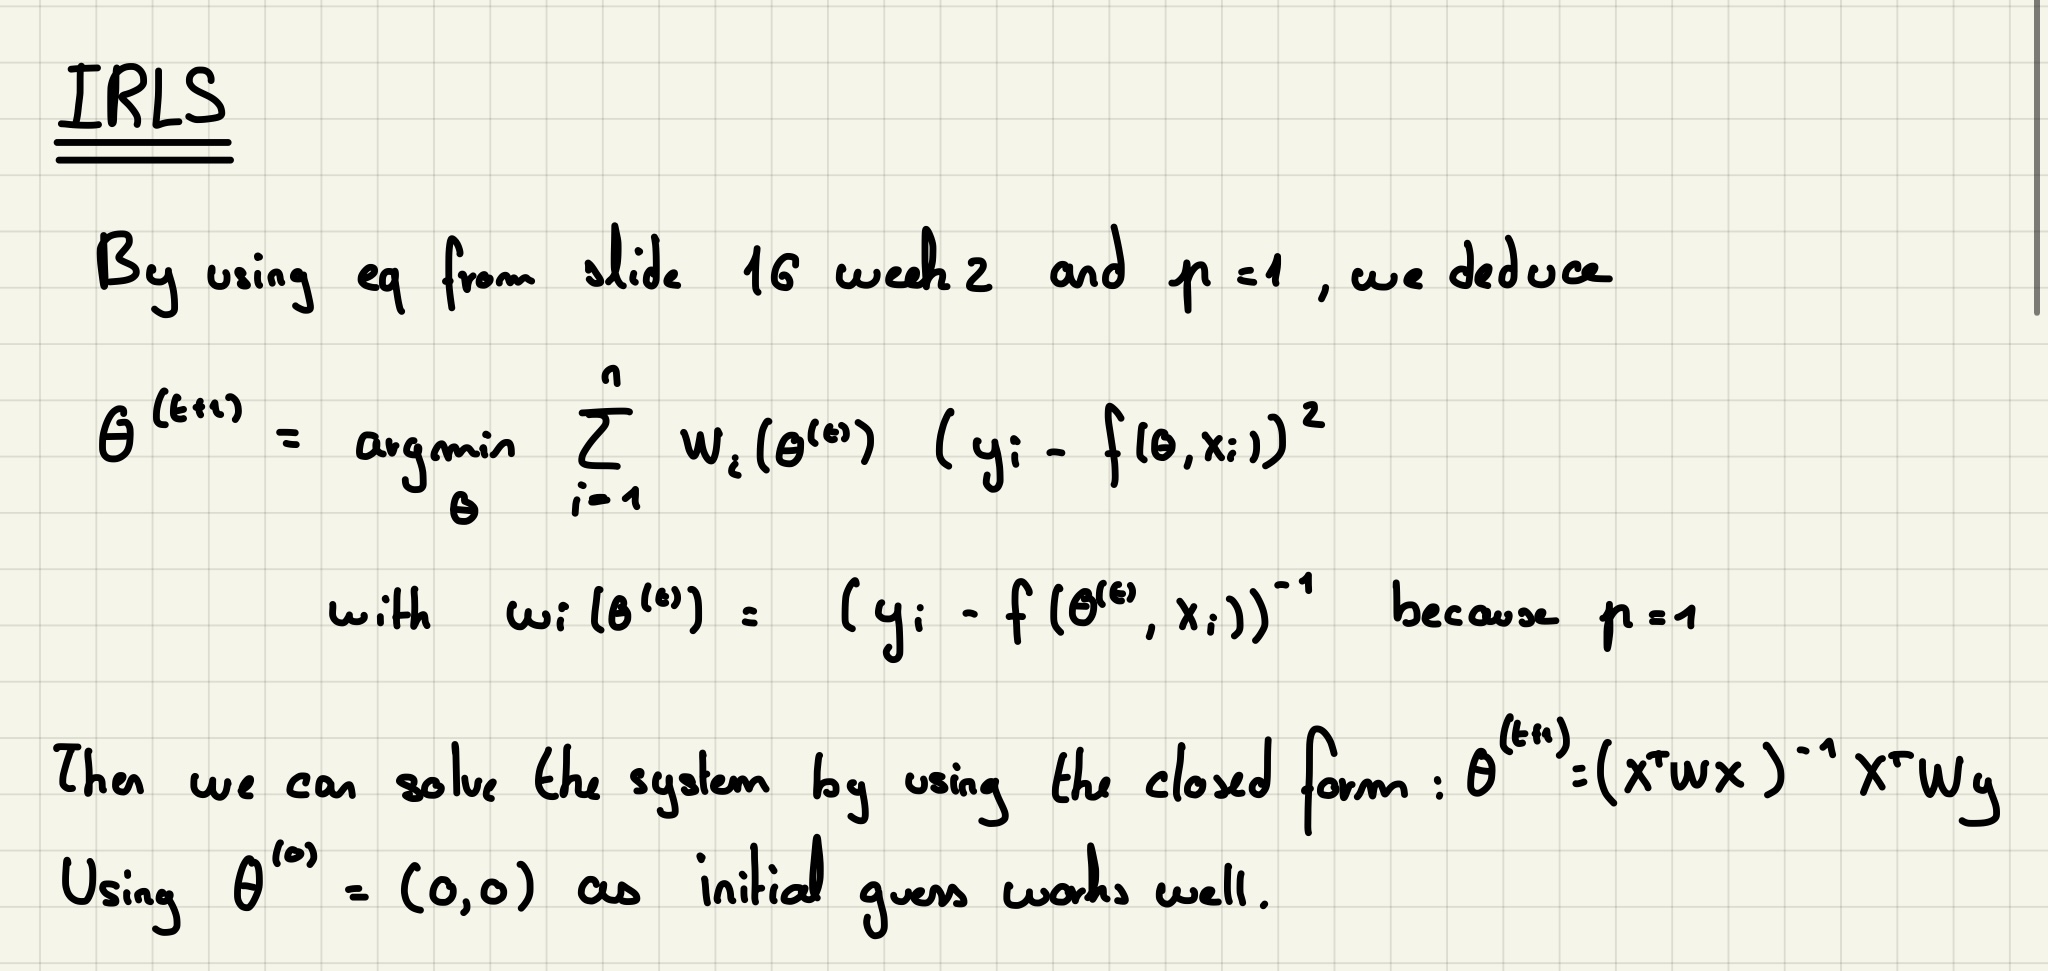 IRLS
By using eq from slide 16 week 2 and p = 1, we deduce
θ^(t+1) = argmin_θ ∑_{i=1}^{n} w_i(θ^(t)) (y_i - f(θ, x_i))^2
with w_i(θ^(t)) = (y_i - f(θ^(t), x_i))^{-1} because p = 1
Then we can solve the system by using the closed form : θ^(t+1) = (X^T W X)^{-1} X^T W y
Using θ^(0) = (0,0) as initial guess works well.